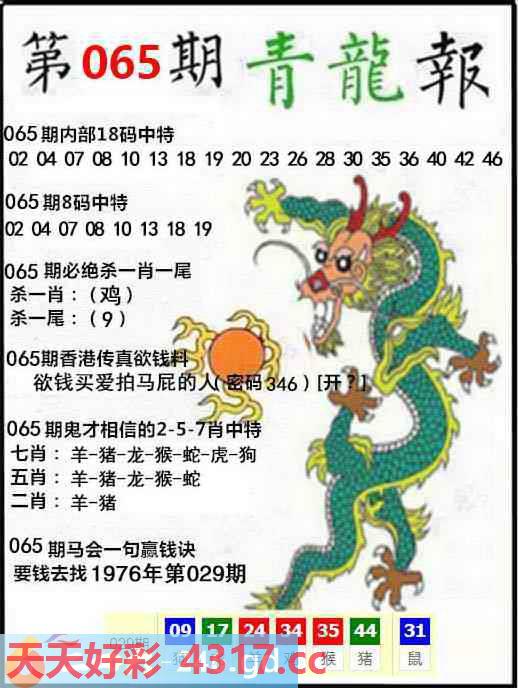 第065期青龍報
065期内部18码中特
02 04 07 08 10 13 18 19 20 23 26 28 30 35 36 40 42 46
065期8码中特
02 04 07 08 10 13 18 19
065期必绝杀一肖一尾
杀一肖：（鸡）
杀一尾：（9）
065期香港传真欲钱料
欲钱买爱拍马屁的人（密码346）[开？]
065期鬼才相信的2-5-7肖中特
七肖：羊-猪-龙-猴-蛇-虎-狗
五肖：羊-猪-龙-猴-蛇
二肖：羊-猪
065期马会一句赢钱诀
要钱去找1976年第029期
029期 09 17 24 34 35 44 31
鸡 猴 猪 鼠
天天好彩 4317.cc